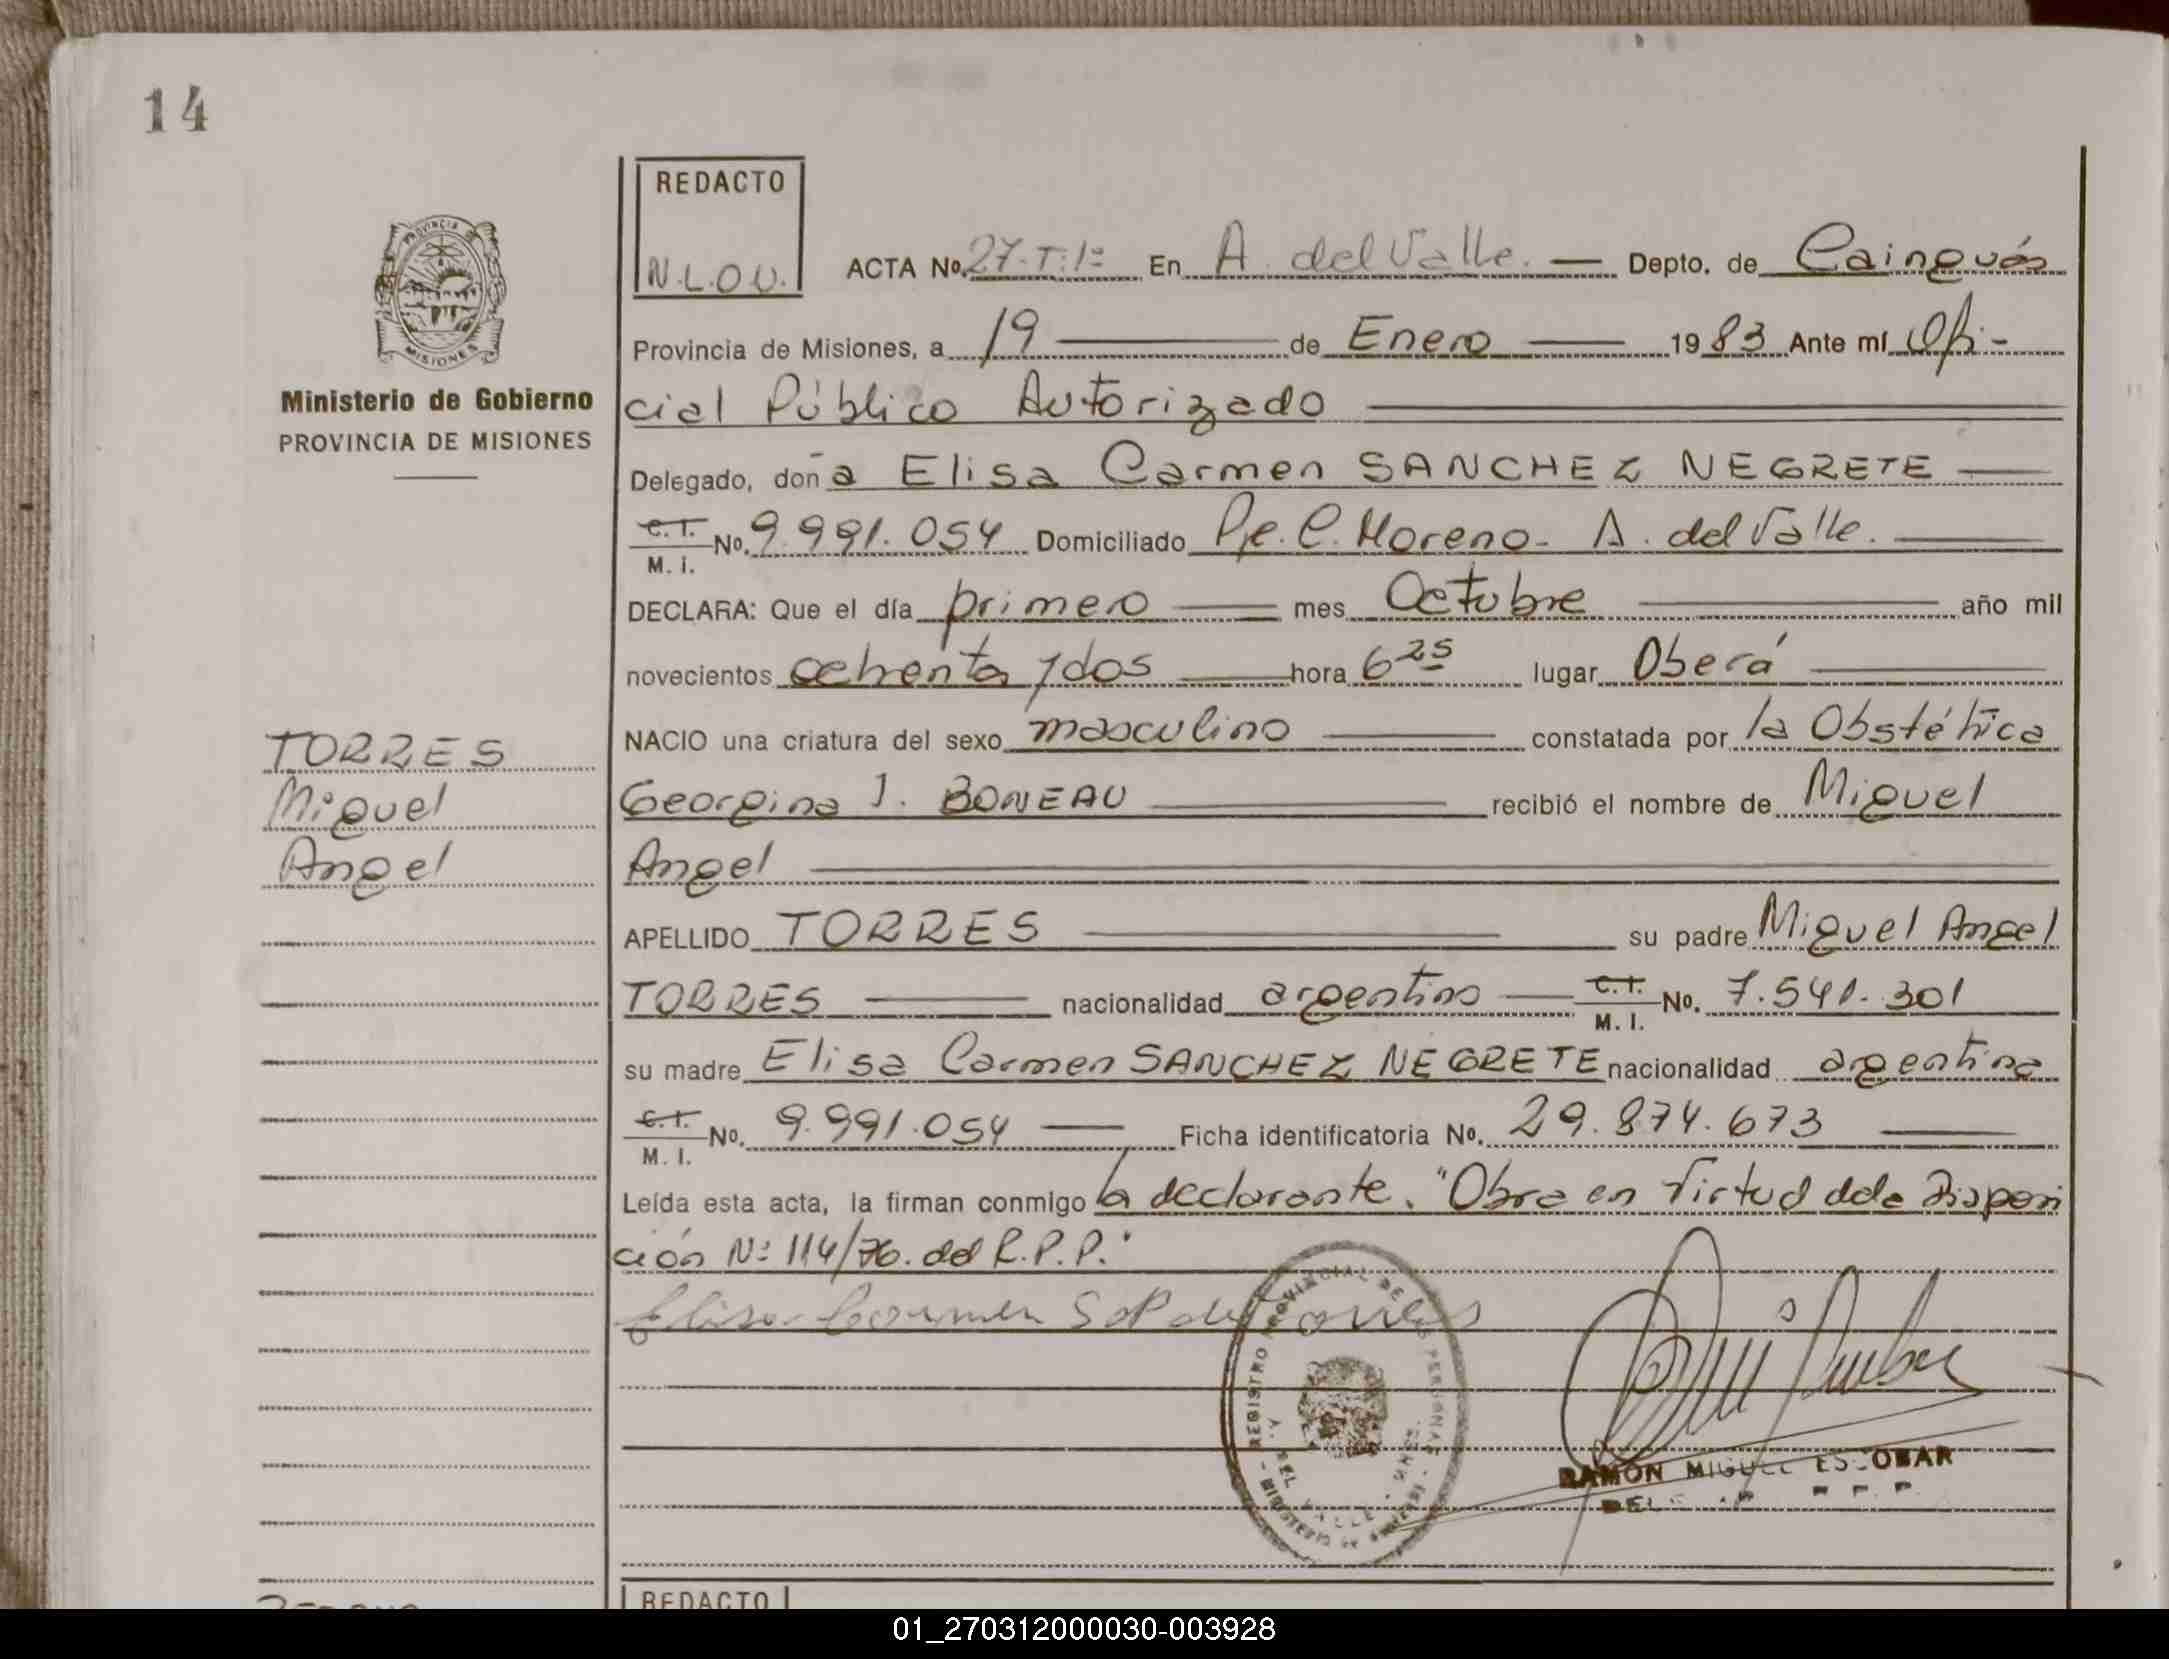 14
REDACTO
N.L.O.V.
PROVINCIA DE
MISIONES
Ministerio de Gobierno
PROVINCIA DE MISIONES
ACTA No. 27-T:1º En A. del Valle. — Depto. de Cainguás
Provincia de Misiones, a 19 — de Enero — 1983 Ante mí Ofi-
cial Público Autorizado
Delegado, doña Elisa Carmen SANCHEZ NEGRETE —
C.I. / M. I. No. 9.991.054 Domiciliado Pje. C. Moreno - A. del Valle. —
DECLARA: Que el día primero — mes Octubre — año mil
novecientos ochenta y dos — hora 6 25 lugar Oberá —
NACIO una criatura del sexo masculino — constatada por la Obstétrica
Georgina J. BONEAU — recibió el nombre de Miguel
Angel
APELLIDO TORRES — su padre Miguel Angel
TORRES — nacionalidad argentino — C.I. / M. I. No. 7.541.301
su madre Elisa Carmen SANCHEZ NEGRETE nacionalidad argentina
C.I. / M. I. No. 9.991.054 — Ficha identificatoria No. 29.874.673 —
Leída esta acta, la firman conmigo la declarante. "Obra en virtud dela Disposi
ción Nº 114/76. del R.P.P."
Elisa Carmen S de Torres
TORRES
Miguel
Angel
REGISTRO PROVINCIAL DE LAS PERSONAS
MINISTERIO DE GOBIERNO
DEL VALLE
RAMON MIGUEL ESCOBAR
REDACTO
01_270312000030-003928